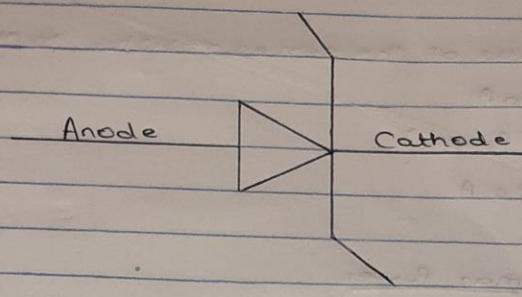 Anode
Cathode